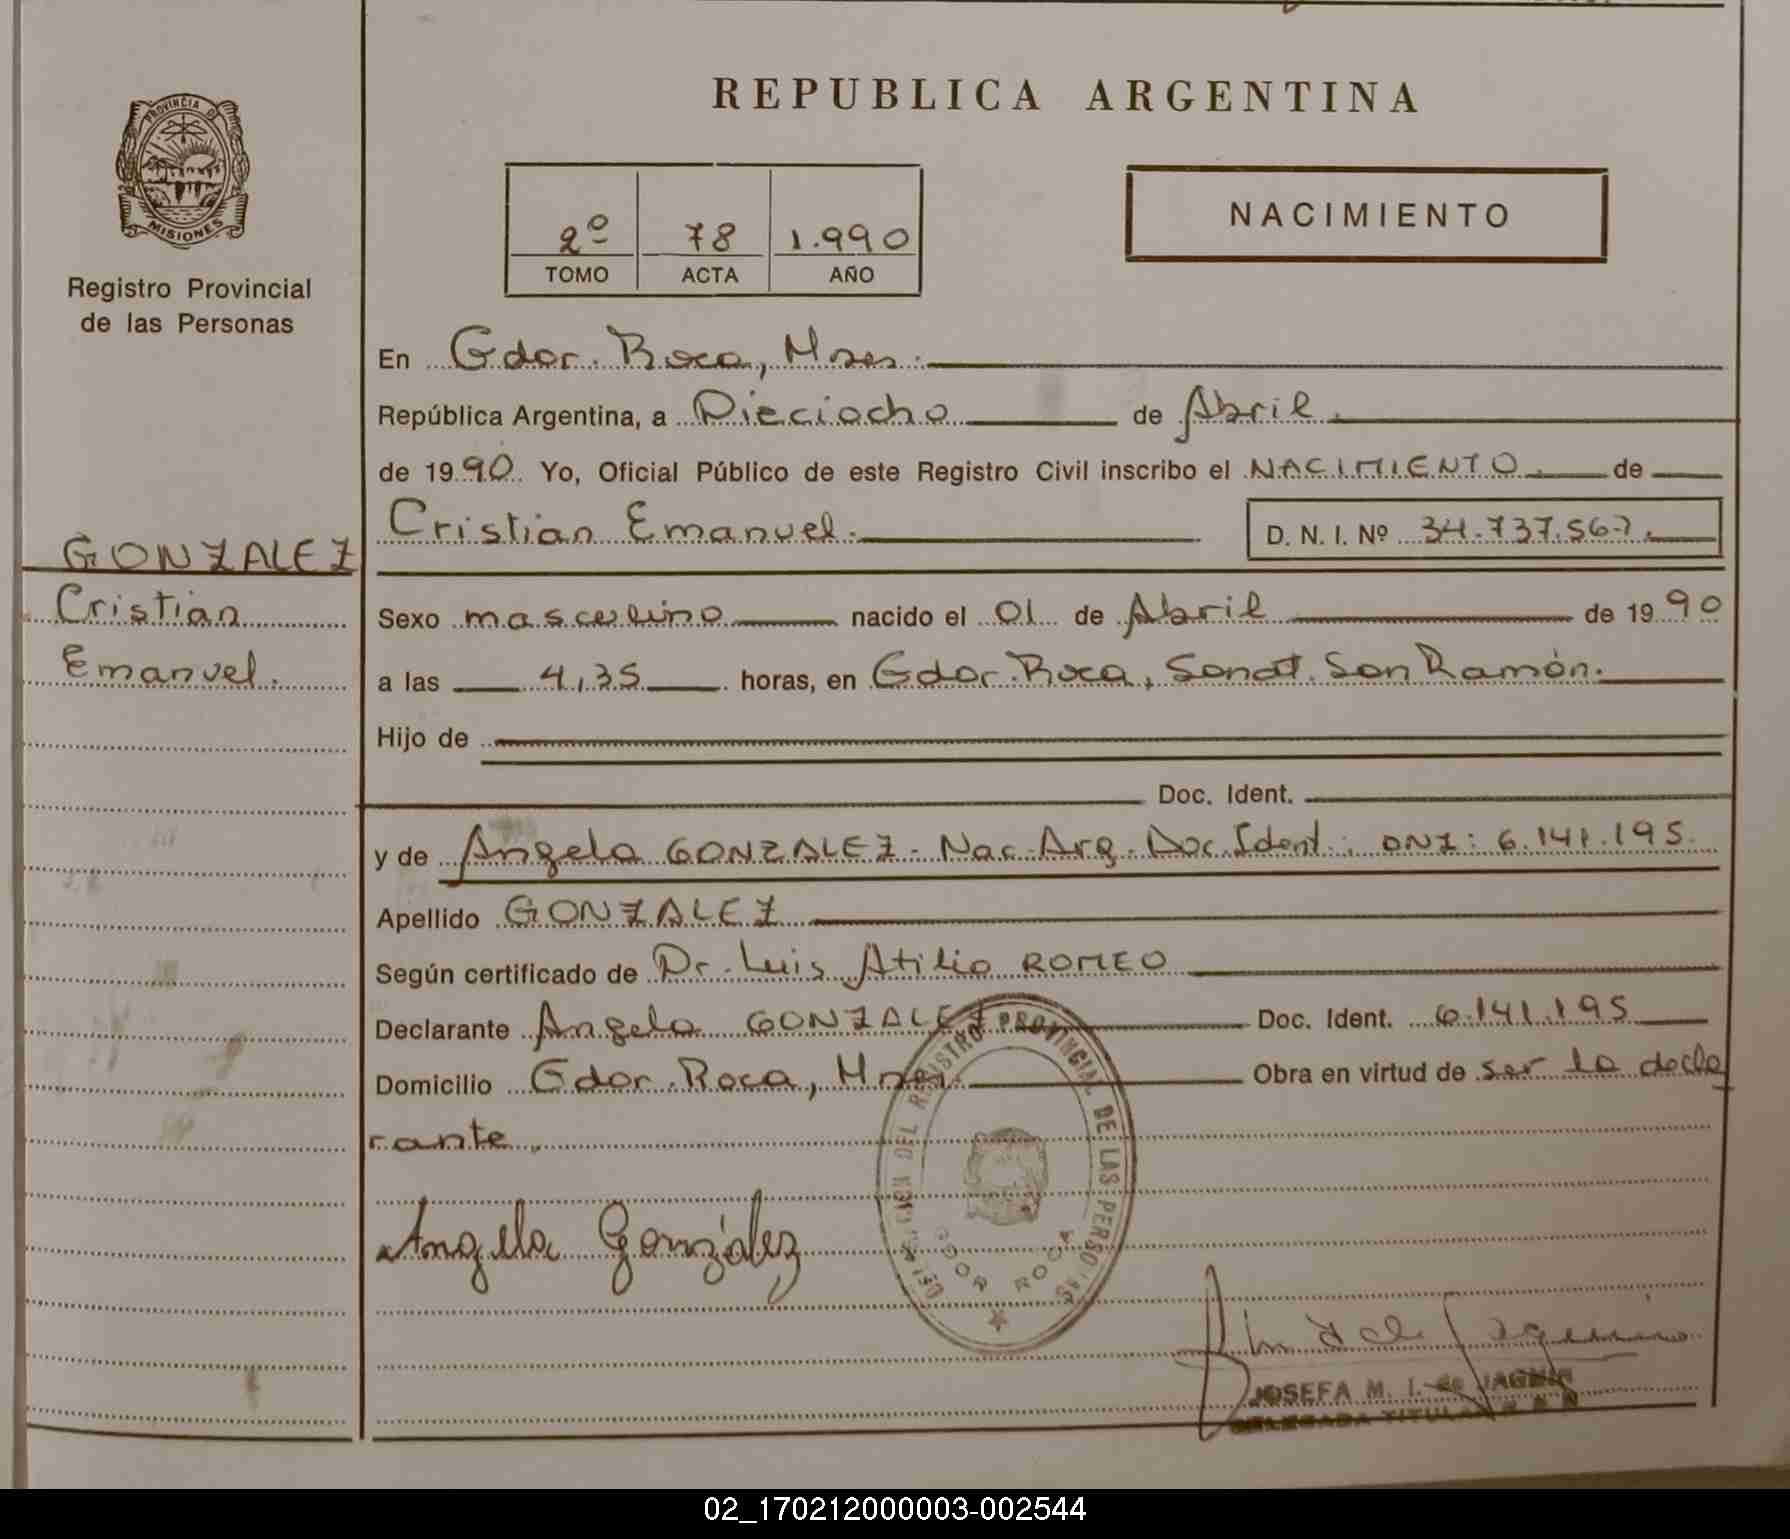 REPUBLICA ARGENTINA
PROVINCIA DE
MISIONES
Registro Provincial
de las Personas
2º 78 1.990
TOMO ACTA AÑO
NACIMIENTO
En Gdor. Roca, Mnes.
República Argentina, a Dieciocho de Abril.
de 1990. Yo, Oficial Público de este Registro Civil inscribo el NACIMIENTO. de
Cristian Emanuel. D. N. I. Nº 34.737.567.
GONZALEZ
Cristian
Emanuel.
Sexo masculino nacido el 01 de Abril de 1990
a las 4,35 horas, en Gdor. Roca, Sanat. San Ramón.
Hijo de
Doc. Ident.
y de Angela GONZALEZ - Nac. Arg. Doc. Ident.: DNI: 6.141.195.
Apellido GONZALEZ
Según certificado de Dr. Luis Atilio ROMEO
Declarante Angela GONZALEZ Doc. Ident. 6.141.195
Domicilio Gdor. Roca, Mnes. Obra en virtud de ser la decla
rante.
Angela González
DELEGACION DEL REGISTRO PROVINCIAL DE LAS PERSONAS
GDOR ROCA
JOSEFA M. I. de
DELEGADA TITULAR
02_170212000003-002544